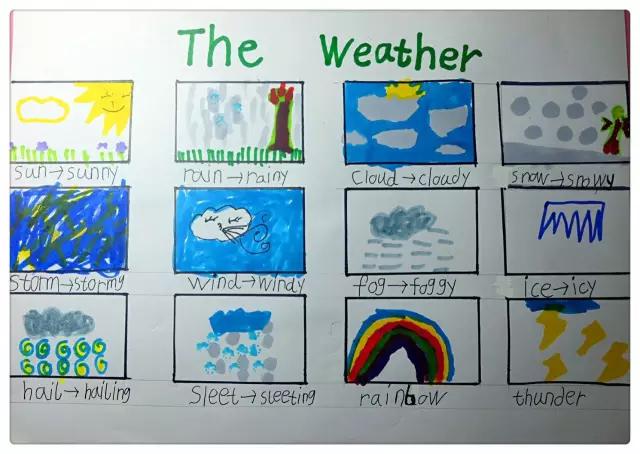 The Weather
sun→sunny
rain→rainy
cloud→cloudy
snow→snowy
storm→stormy
wind→windy
fog→foggy
ice→icy
hail→hailing
sleet→sleeting
rainbow
thunder